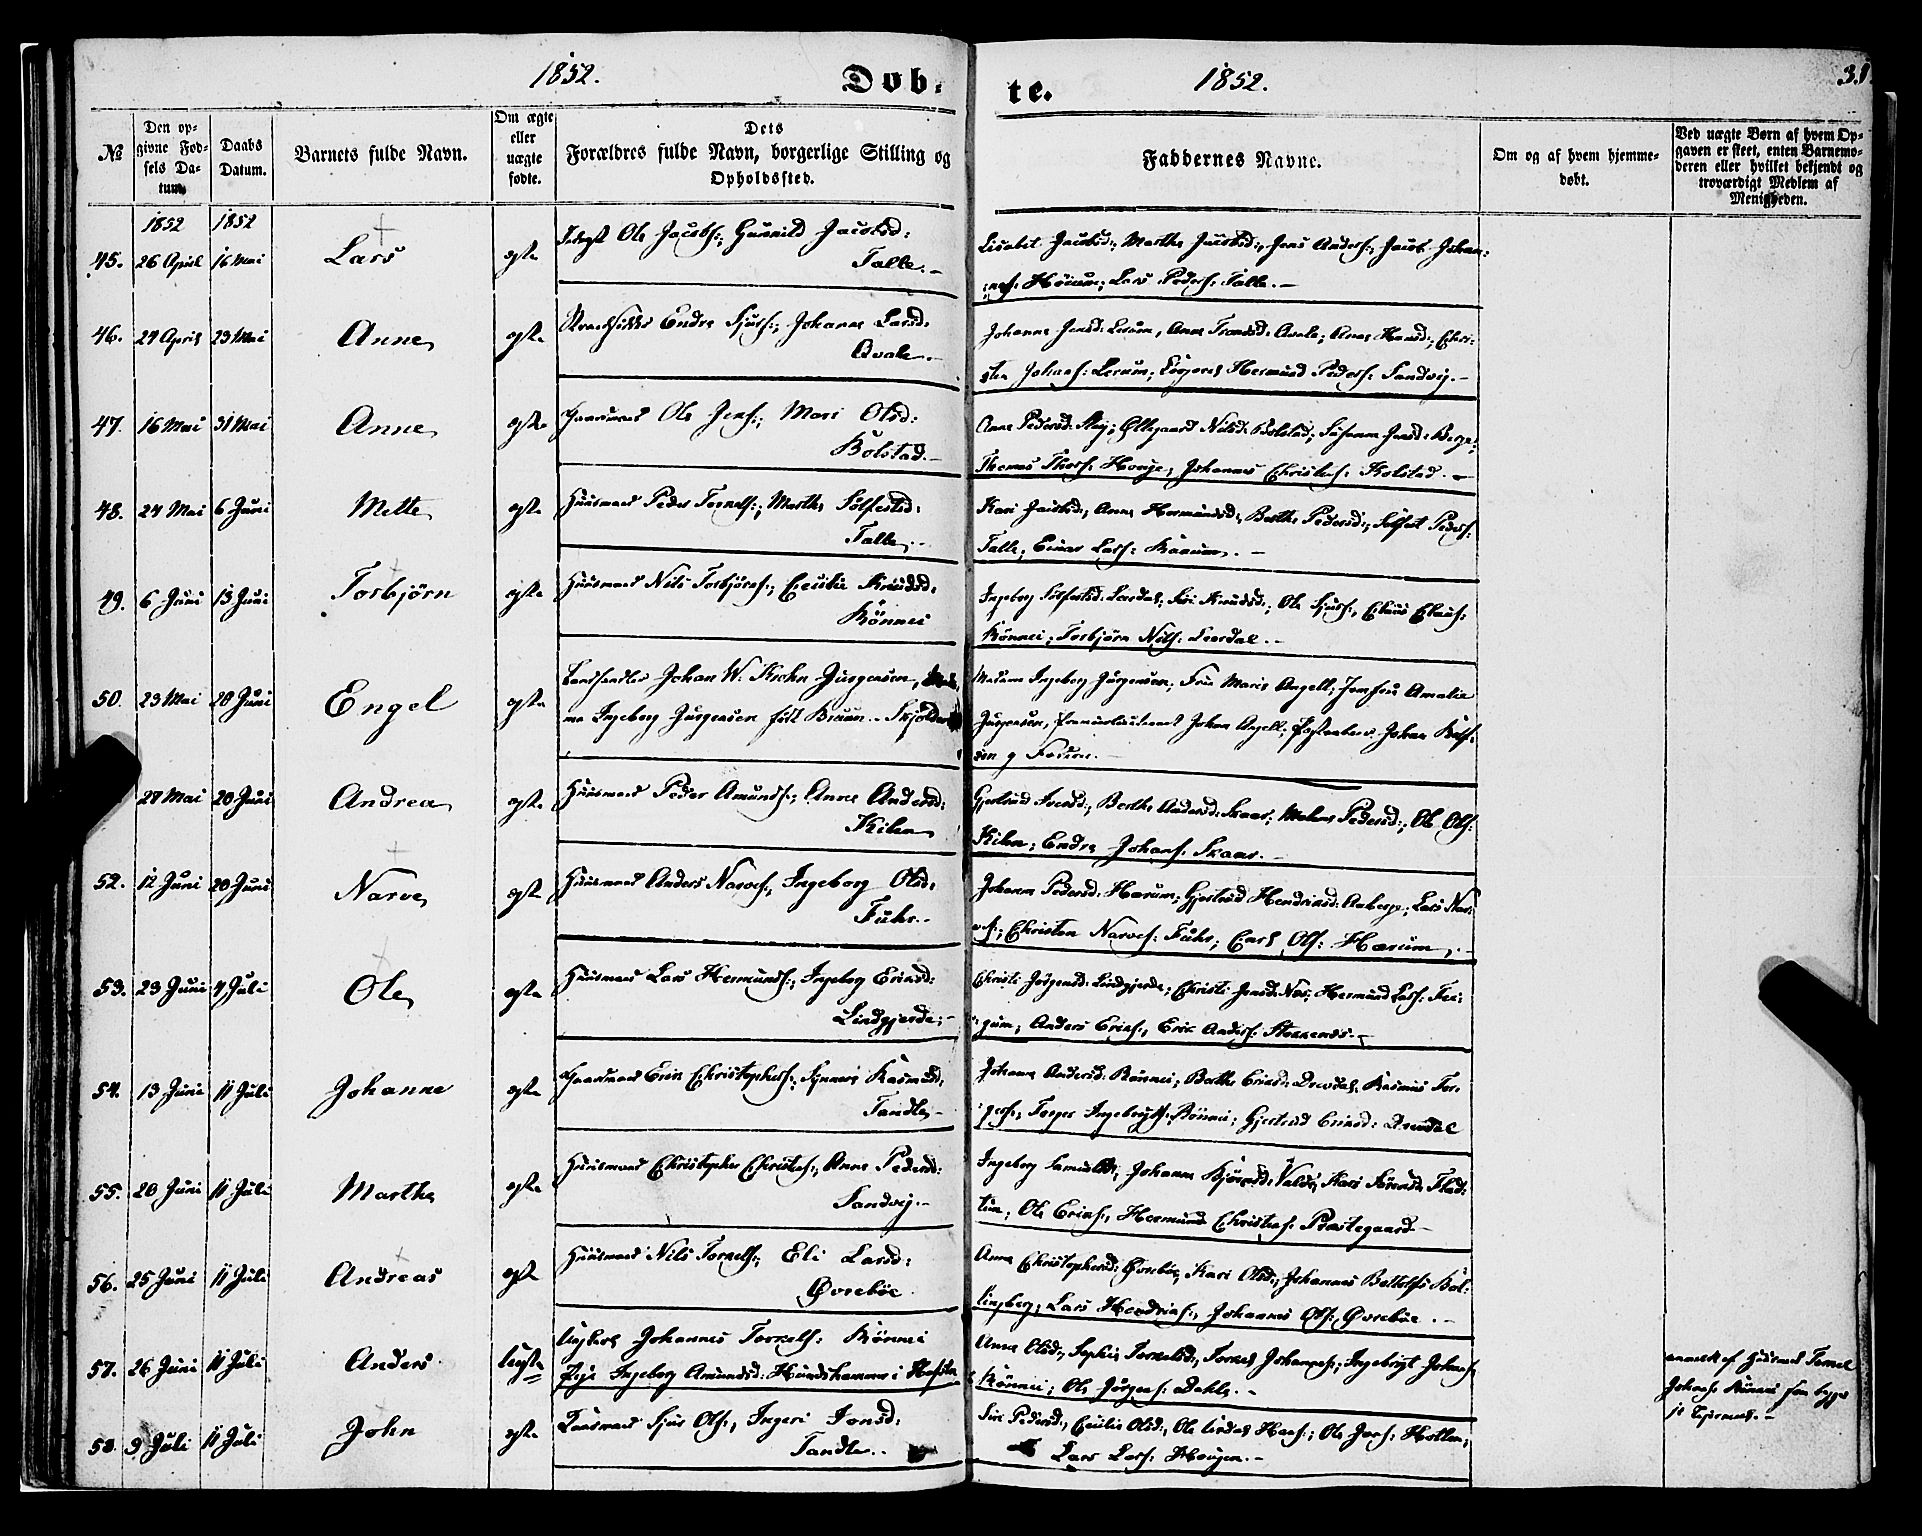 1852.
Døb-
te.
1852.
31
№
Den op-
givne Fød-
sels Da-
tum.
Daabs
Datum.
Barnets fulde Navn.
Om ægte
eller
uægte
fødte.
Dets
Forældres fulde Navn, borgerlige Stilling og
Opholdssted.
Faddernes Navne.
Om og af hvem hjemme-
døbt.
Ved uægte Børn af hvem Op-
gaven er skeet, enten Barnemo-
deren eller hvilket bekjendt og
troværdigt Medlem af
Menigheden.
1852
1852
45. 26 April 16 Mai Lars egte Ole Jacobs:, Gunnild Jacobsd:
Talle.-
Lisabet Jacobsd:, Marthe Jacobsd:, Jens Anders:, Jacob Johan-
nes: Lars Peders: Talle.-
46. 29 April 23 Mai Anne egte Endre Sjurs:, Johanne Larsd:
Qvale.-
Johanne Jensd: Lerum, Anne Qvale; Anne Hansd:, Chri-
sten Johans: Lerum; Hermund Peders: Sandvig.-
47. 16 Mai 31 Mai Anne egte Gaardmand Ole Jens:, Mari Olsd:
Bolstad.-
Anne Pedersd: Øllegaard Nilsd: Bolstad; Susanne Jensd: Berge;
Thomas Hauge, Johannes Christens: Kolstad.-
48. 24 Mai 6 Juni Mette egte Huusmand Peder Torkels:, Marthe Sølfestsd:
Talle.-
Kari Jacobsd:, Anne Hermundsd:, Berthe Pedersd:, Sølfest Peders:
Talle, Einar Lars: Kaarum.-
49. 6 Juni 13 Juni Torbjörn egte Huusmand Nils Torbjörns:, Cecilie Knudsd:
Rönnei
Ingeborg Sølfestsd: Siri Knudsd:, Ole Sjurs:, Claus Claus:
Rönnei; Torbjörn Nils: Leerdal.-
50. 23 Mai 20 Juni Engel egte Landhandler Johan W. Krohn Jürgensen, Mada-
me Ingeborg Jürgensen født Bruun.- Skjolden
Madame Ingeborg Jürgensen; Frue Marie Angell; Jomfru Amalie
Jürgensen, Premierlieutenant Johan Angell, Johan
sen g Faderen.-
27 Mai 20 Juni Andrea egte Huusmand Peder Amunds:, Anne Andersd:
Kilen
Gjertrud Iversd:, Berthe Andersd: Skaar; Malene Pedersd:, Ole Ols:
Kilen; Endre Johans: Skaar.-
52. 12 Juni 20 Juni Narve egte Huusmand Anders Narves:, Ingeborg Olsd:
Fuhr.-
Johanne Pedersd: Hærum; Gjertrud Hendriksd: Aaberge, Lars Nar-
ves:; Christen Narves: Fuhr; Ols: Hærum.-
53. 23 Juni 4 Juli Ole egte Huusmand Lars Hermunds:, Ingeborg Eriksd:
Lindgjerde.-
Christi Jørgensd: Lindgjerde; Christi Jensd: Næs; Hermund Lars: Fei-
gum; Anders Eriks:, Erik Anders: Stokkenæs.-
54. 13 Juni 11 Juli Johanne egte Gaardmand Erik Christophers:, Synneve Rasmusd:
Tandle.-
Johanne Andersd: Rönnei; Berthe Eriksd: Drevdal, Rasmus Tor-
gers:, Torger Ingebrigts: Rönnei; Gjertrud Eriksd: Drevdal
55. 20 Juni 11 Juli Marthe egte Huusmand Christopher Christens:, Anne Pedersd:
Sandvig.-
Ingeborg Samuelsd:, Johanne Bjørnsd: Kari Sørensd: Flah-
tun; Ole Eriks:, Hermund Christens: Præstegaard.-
56. 25 Juni 11 Juli Andreas egte Huusmand Nils Torkels:, Eli Larsd:
Øvrebøe.
Anna Christophersd: Øvrebøe, Kari Olsd:, Johannes Botolfs: Bol-
lingberg, Lars Hendriks:, Johannes Ols: Øvrebøe.-
57. 26 Juni 11 Juli Anders uegte Ungkarl Johannes Torkels: Rönnei
Pige Ingeborg Amundsd: Hundshammer i Hafslo
Anna Olsd:, Sophie Torkelsd:, Torkel Johannes:, Ingebrigt Johans:
Rönnei; Ole Jörgens: Dahle.-
anmeldt af Huusmand Torkel
Johans: Rönnei
58. 9 Juli 11 Juli John egte Huusmand Sjur Ols:, Ingeri Jonsd:
Tandle.-
Siri Pedersd:, Cecilie Olsd:, Ole Hans:, Ole Jens: Holten,
Lars Lars: Haugen.-